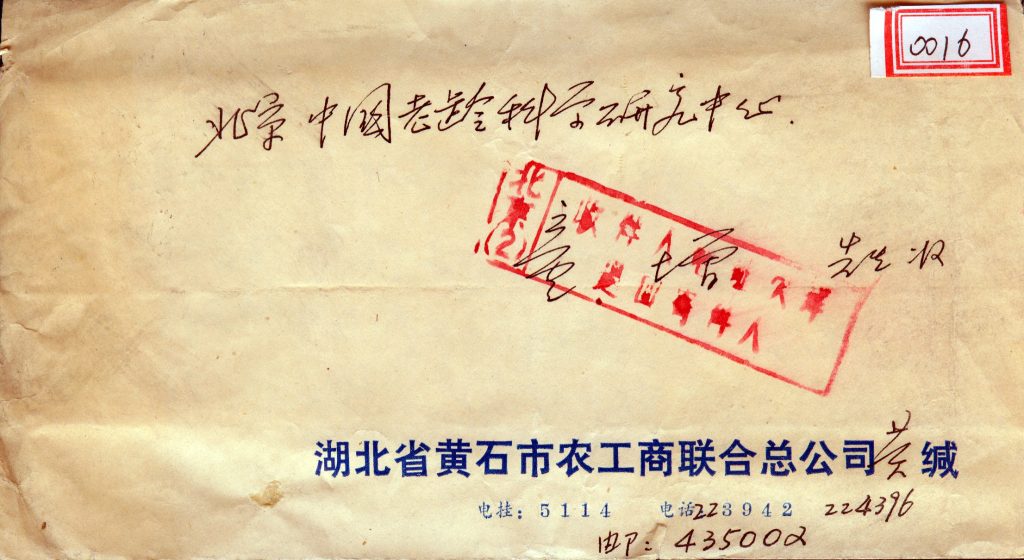 0016
北京中国老龄科学研究中心.
北京(2)
收件人地址欠详
退回寄件人
童增 先生收
湖北省黄石市农工商联合总公司黄缄
电挂：5114 电话223942 224396
邮：435002